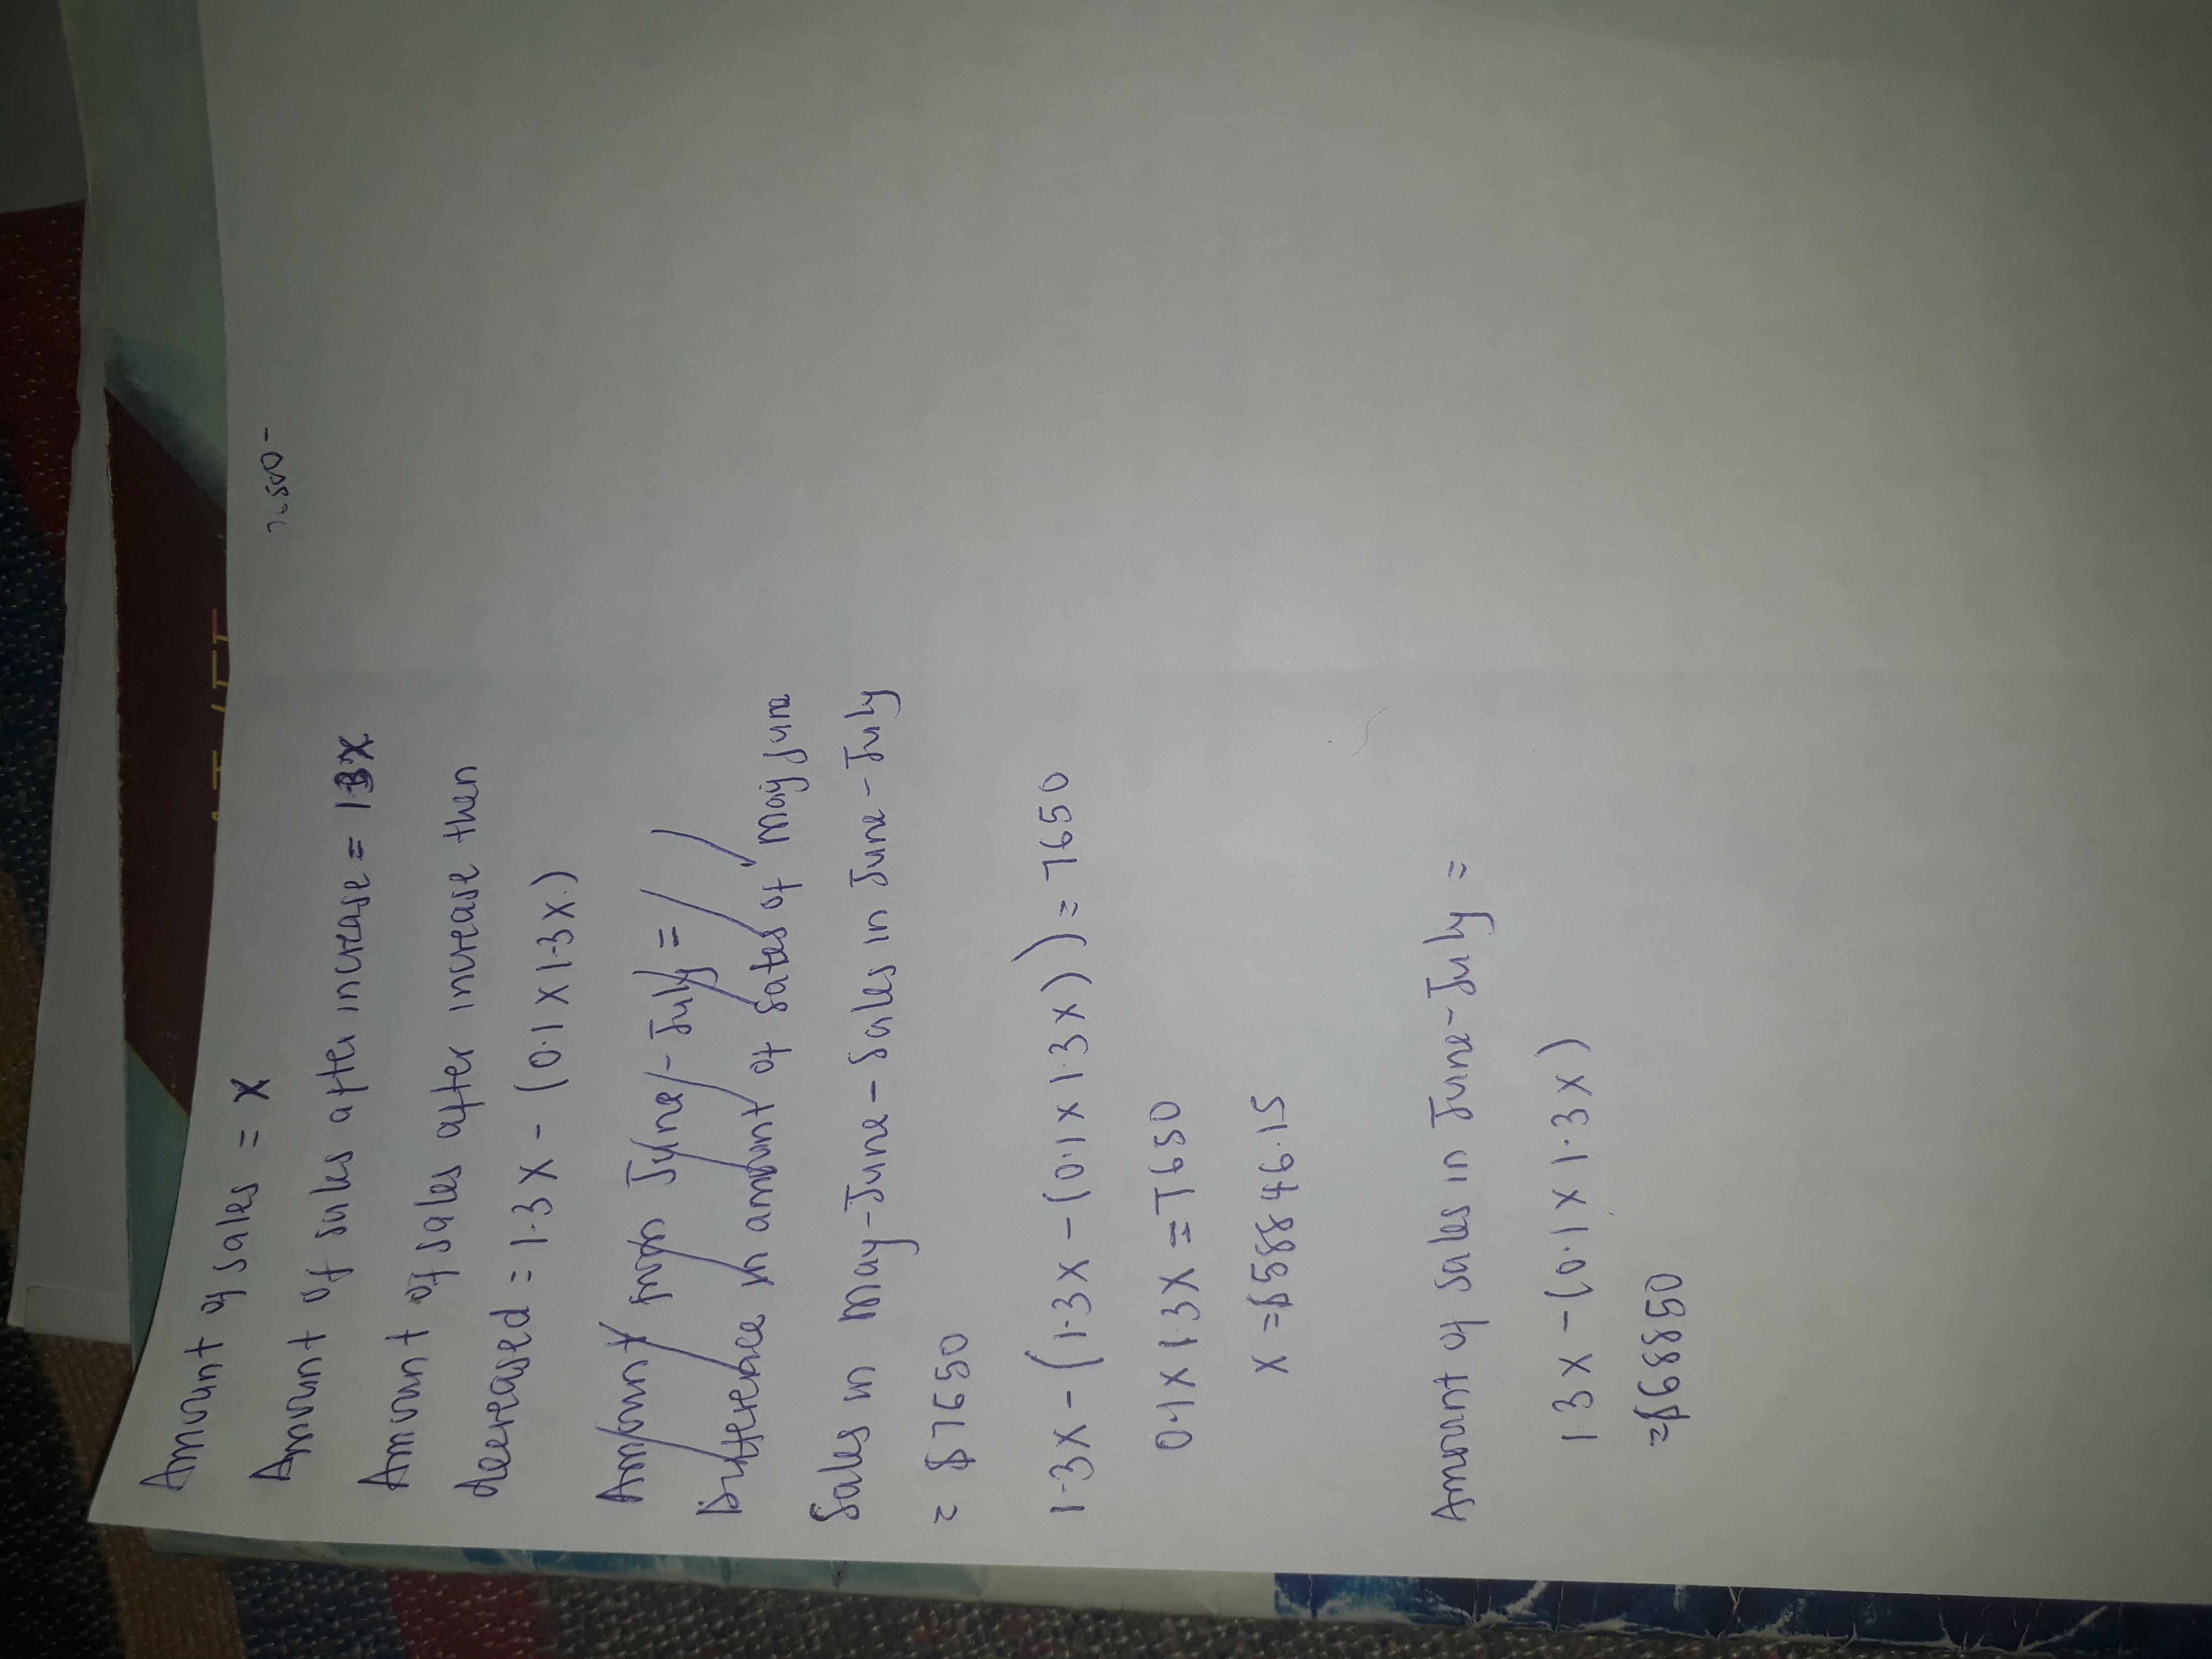 76500 -
Amount of sales = x
Amount of sales after increase = 1.3x
Amount of sales after increase then
decreased = 1.3x - (0.1 x 1.3x)
Amount from June - July =
Difference in amount of sales of May June
Sales in May-June - Sales in June - July
= $7650
1.3x - (1.3x - (0.1 x 1.3x)) = 7650
0.1 x 1.3x = 7650
x = $58846.15
Amount of sales in June - July =
1.3x - (0.1 x 1.3x)
= $68850